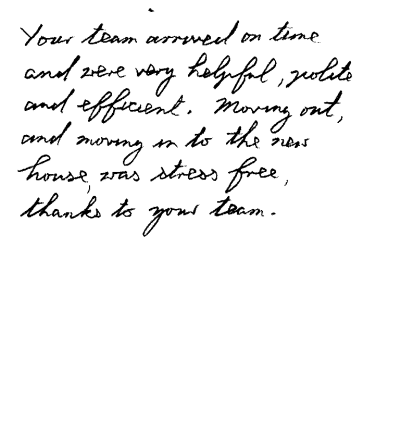 Your team arrived on time
and were very helpful, polite
and efficient. Moving out,
and moving in to the new
house, was stress free,
thanks to your team.